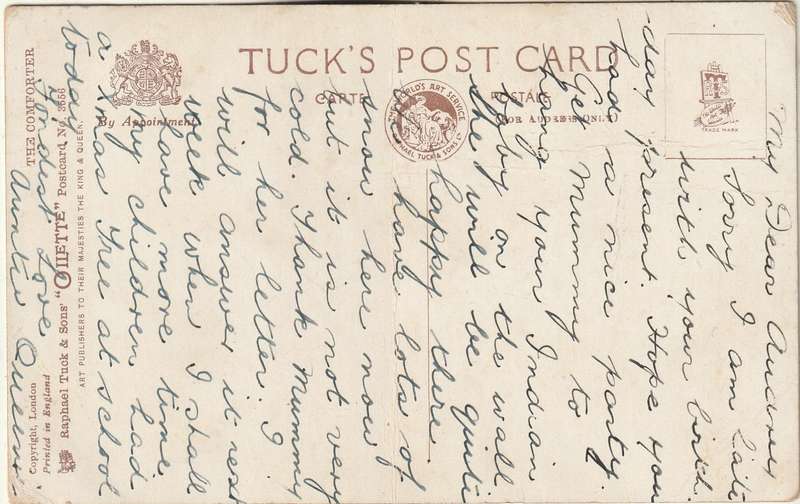 TUCK'S POST CARD
CARTE POSTALE
By Appointment
(FOR ADDRESS ONLY)
THE WORLD'S ART SERVICE
RAPHAEL TUCK & SONS LD
TRADE MARK
My Dear Audrey
Sorry I am late
with your birth-
day present. Hope you
had a nice party.
Get Mummy to
hang your Indian
baby on the wall
She will be quite
happy there.
We have lots of
snow here now
but it is not very
cold. Thank Mummy
for her letter. I
will answer it next
week when I shall
have more time.
My children had
a Xmas Tree at school
today.
Fondest Love
Auntie Queenie.
THE COMFORTER
Raphael Tuck & Sons' "OILETTE" Postcard No. 3556
ART PUBLISHERS TO THEIR MAJESTIES THE KING & QUEEN.
Copyright, London
Printed in England